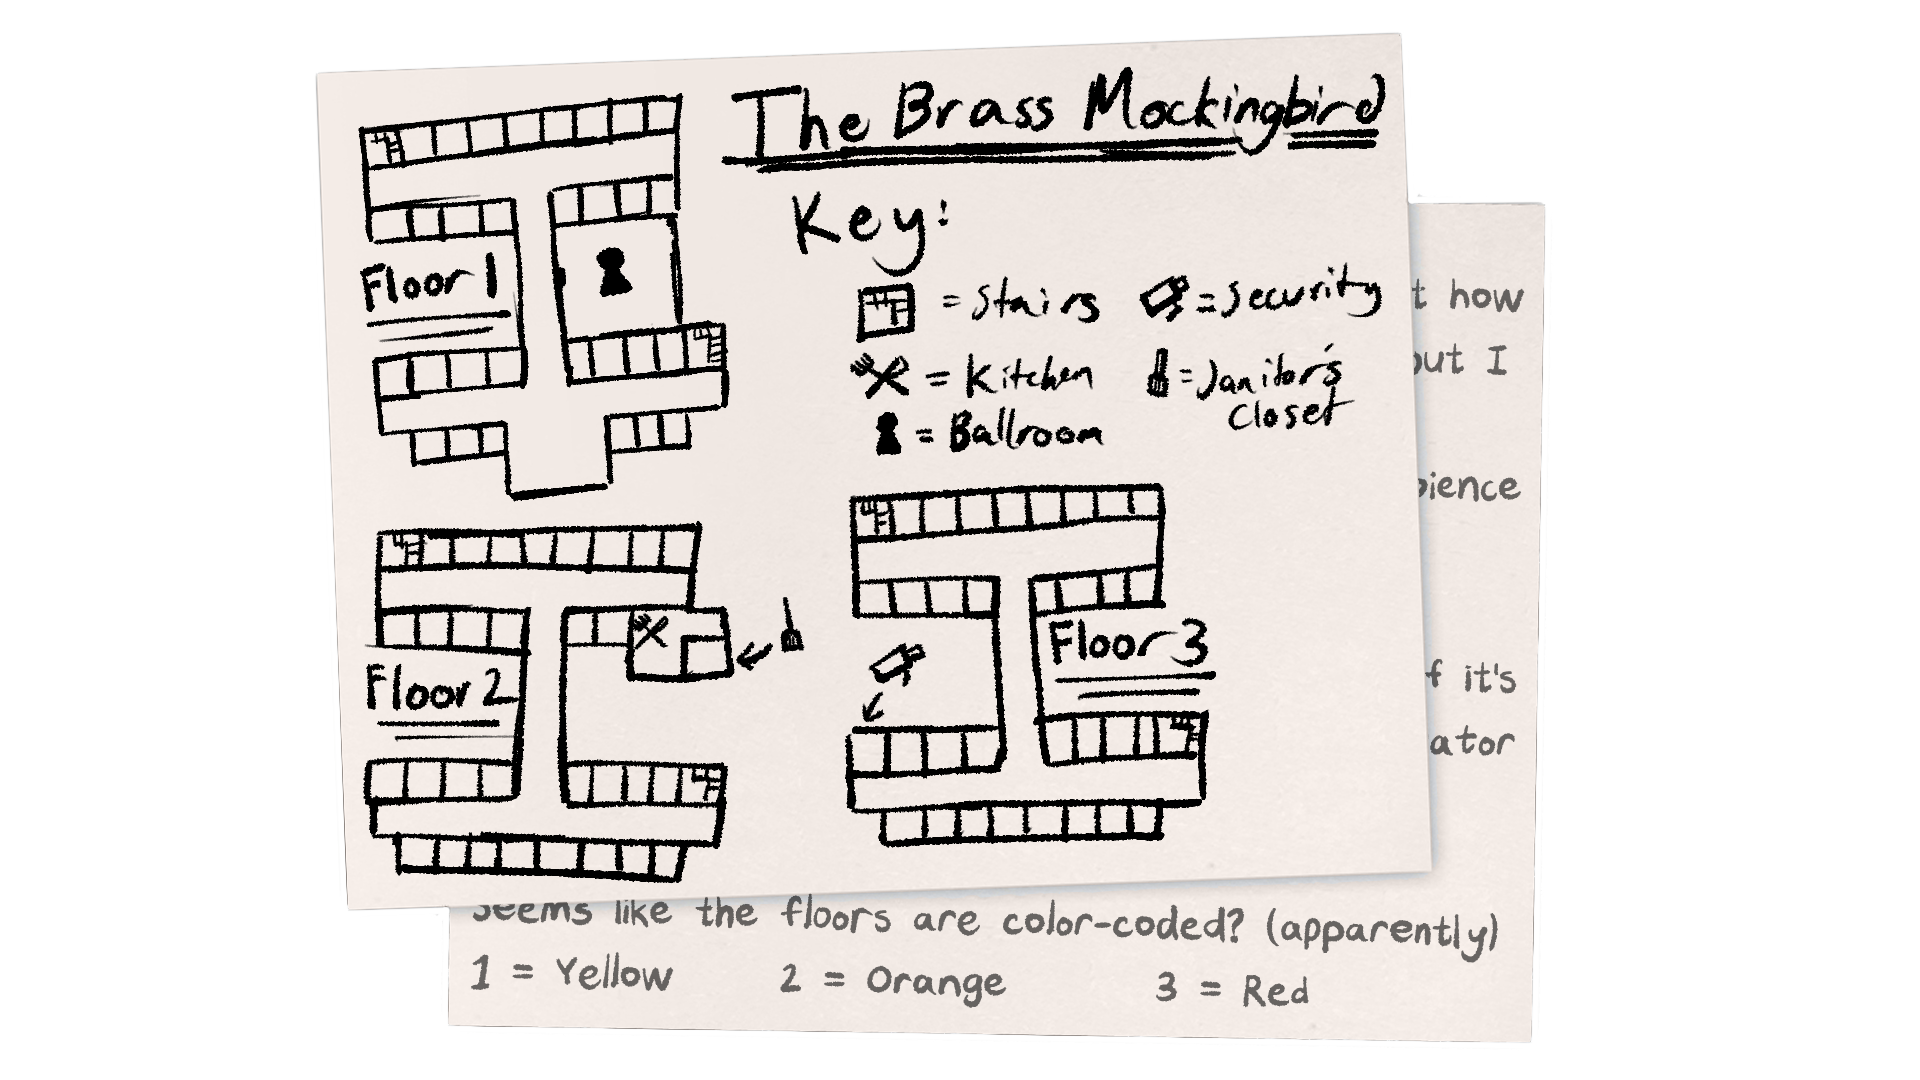 The Brass Mockingbird
Key:
= Stairs
= Security
= Kitchen
= Janitor's
Closet
= Ballroom
Floor 1
Floor 2
Floor 3
how
I
if it's
seems like the floors are color-coded? (apparently)
1 = Yellow 2 = Orange 3 = Red